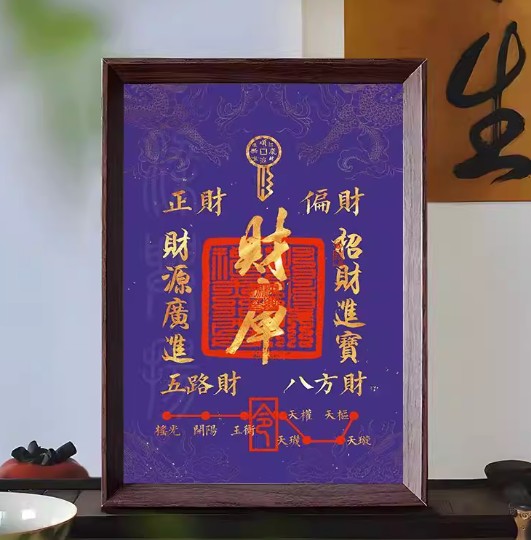 正財
偏財
財源廣進
財庫
招財進寶
五路財
八方財
令
搖光
開陽
玉衡
天權
天樞
天璣
天璇
生